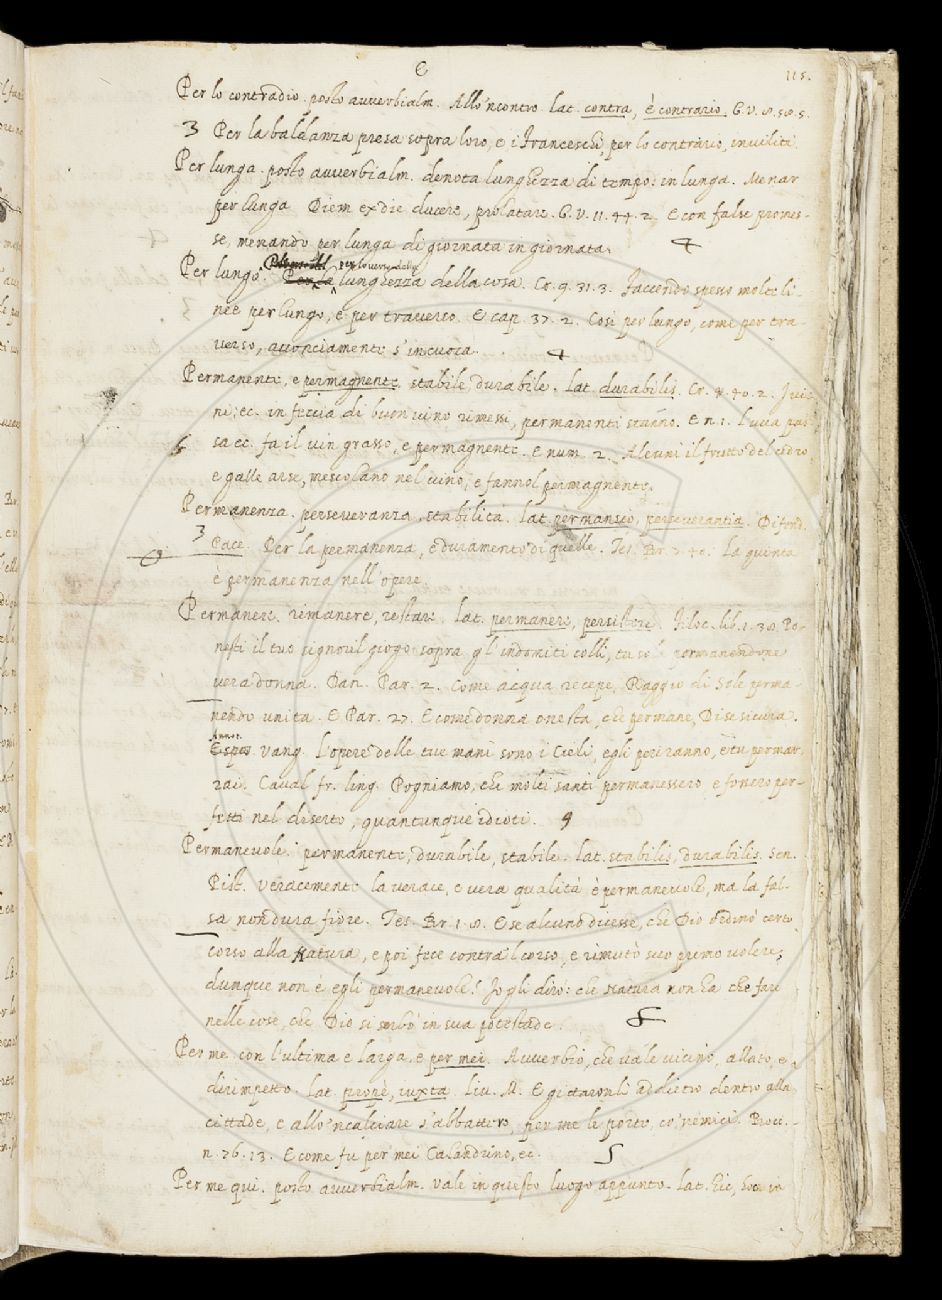 115.
Per lo contradio. posto avverbialm. All'oncontro. lat. contra, è contrario. G. V. 8. 58. 5.
3 Per la baldanza presa sopra loro, e i Franceschi, per lo contrario, inviliti.
Per lunga. posto avverbialm. denota lunghezza di tempo: in lunga. Menar
per lunga Diem ex die ducere, prolatare. G. V. 11. 44. 2. E con false promes-
se, menando per lunga di giornata in giornata. 4
Per lungo. per lo verso della
lunghezza della cosa. Cr. 9. 31. 3. Faccendo spesso molte li-
nee per lungo, e per traverso. E cap. 37. 2. Così per lungo, come per tra-
verso, acconciamente s'incuoca. 4
Permanente, e permagnente. stabile, durabile. lat. durabilis. Cr. 4. 40. 2. I vi-
ni: ec. in feccia di buon vino rimessi, permanenti stanno. E n. 1. L'uva pas-
6 sa ec. fa il vin grasso, e permagnente. E num. 2. Alcuni il frutto del cedro,
e galle arse, mescolano nel vino, e fannol permagnente.
Permanenza. perseveranza, stabilità. lat. permansio, perseverantia. Difend.
3 Pace. Per la permanenza, e duramento di quelle. Tes. Br. 7. 40. La quinta
è permanenza nell'opere.
Permanere. rimanere, restare. lat. permanere, persistere. Filoc. lib. 1. 38. Po-
nesti il tuo signoril giogo sopra gl'indomiti colli, tu sol permanendone
vera donna. Dan. Par. 2. Come acqua recepe, Raggio di Sole perma-
nendo unita. E Par. 27. E come donna onesta, che permane, Di se sicura.
Annot.
Espos. Vang. L'opere delle tue mani sono i Cieli, egli periranno, e tu permar-
rai. Caval. fr. ling. Pognamo, che molti santi permanessero e fossero per-
fetti nel diserto, quantunque idioti. 9
Permanevole. permanente, durabile, stabile. lat. stabilis, durabilis. Sen.
Pist. Veracemente la verace, e vera qualità è permanevole, ma la fal-
sa non dura fiore. Tes. Br. 1. 8. E se alcuno dicesse, che Dio ordinò certo
corso alla Natura, e poi fece contra 'l corso, e rimutò suo primo volere,
dunque non è egli permanevole? Io gli dirò: che natura non ha che fare
nelle cose, che Dio si serbò in sua potestade. 5
Per me. con l'ultima e larga, e per mei. Avverbio, che vale vicino, allato, e
dirimpetto. lat. propè, iuxta. Liv. M. E gittaronli addietro dentro alla
cittade, e all'oncalciare s'abbattero, per me le porte, co' nemici. Bocc.
n. 76. 13. E come fu per mei Calandrino, ec. 5
Per me qui. posto avverbialm. vale in questo luogo appunto. lat. hic, hoc in